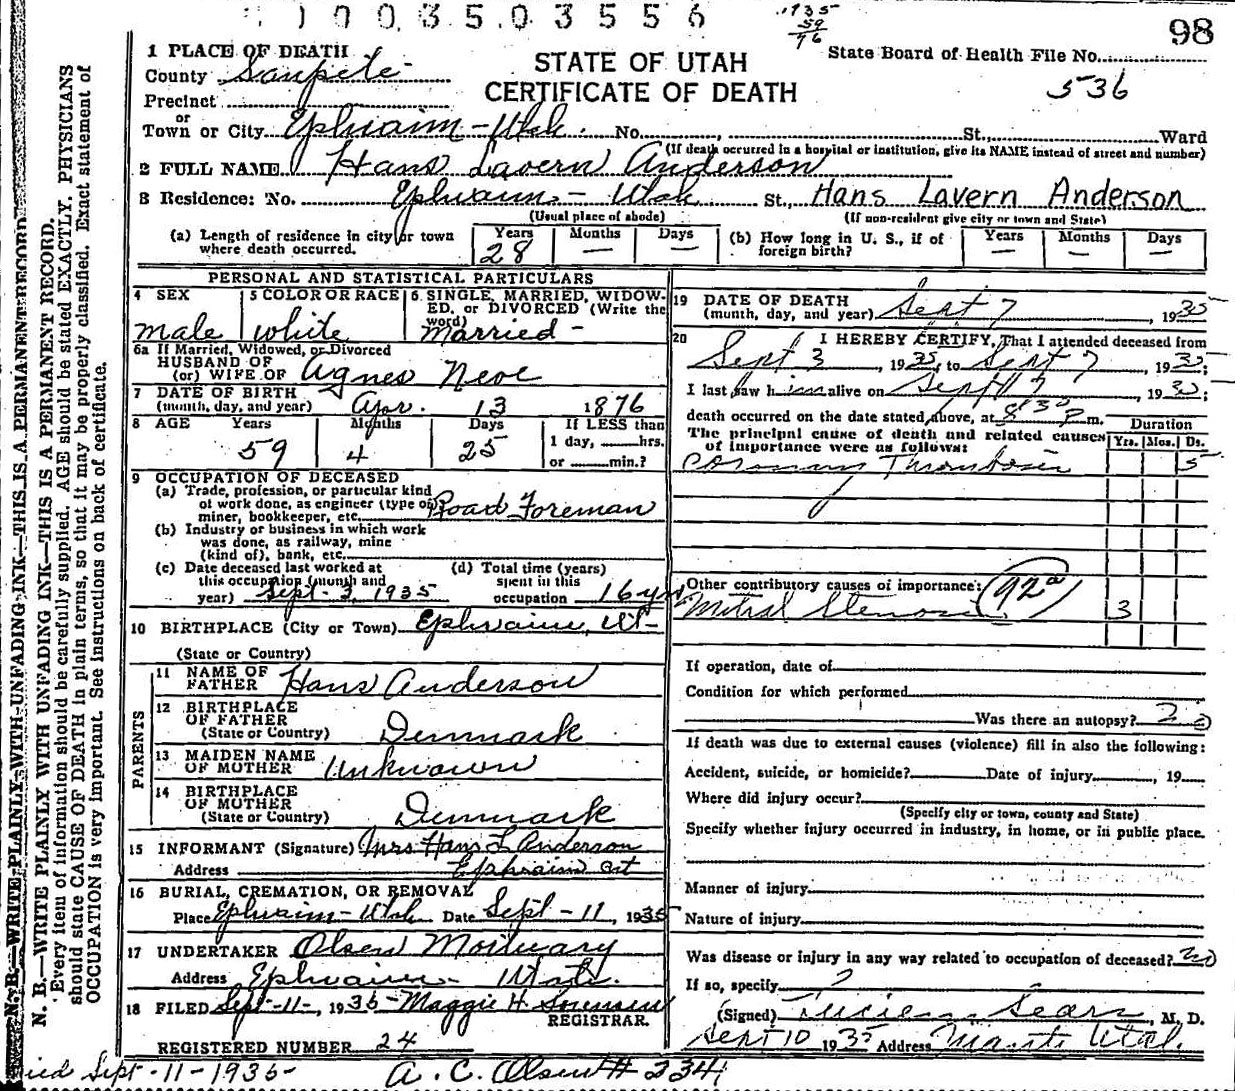 1003503556
1935
59
76
98
1 PLACE OF DEATH
STATE OF UTAH
CERTIFICATE OF DEATH
State Board of Health File No.
536
County Sanpete
Precinct
or
Town or City Ephraim - Utah. No. , St., Ward
(If death occurred in a hospital or institution, give its NAME instead of street and number)
2 FULL NAME Hans Lavern Anderson
3 Residence: No. Ephraim - Utah St., Hans Lavern Anderson
(Usual place of abode) (If non-resident give city or town and State)
(a) Length of residence in city or town where death occurred. Years 28 Months — Days — (b) How long in U. S., if of foreign birth? Years — Months — Days —
PERSONAL AND STATISTICAL PARTICULARS
4 SEX male
5 COLOR OR RACE white
6 SINGLE, MARRIED, WIDOWED, or DIVORCED (Write the word) Married -
6a If Married, Widowed, or Divorced
HUSBAND OF
(or) WIFE OF Agnes Neve
7 DATE OF BIRTH
(month, day, and year) Apr. 13 1876
8 AGE Years 59 Months 4 Days 25 If LESS than
1 day, hrs.
or min.?
9 OCCUPATION OF DECEASED
(a) Trade, profession, or particular kind
of work done, as engineer (type of)
miner, bookkeeper, etc. Road Foreman
(b) Industry or business in which work
was done, as railway, mine
(kind of), bank, etc.
(c) Date deceased last worked at
this occupation (month and
year) Sept. 3, 1935
(d) Total time (years)
spent in this
occupation 16 yrs
10 BIRTHPLACE (City or Town) Ephraim, Ut-
(State or Country)
PARENTS
11 NAME OF
FATHER Hans Anderson
12 BIRTHPLACE
OF FATHER
(State or Country) Denmark
13 MAIDEN NAME
OF MOTHER Unknown
14 BIRTHPLACE
OF MOTHER
(State or Country) Denmark
15 INFORMANT (Signature) Mrs Hans L Anderson
Address Ephraim Ut
16 BURIAL, CREMATION, OR REMOVAL
Place Ephraim - Utah Date Sept - 11, 1935
17 UNDERTAKER Olsen Mortuary
Address Ephraim - Utah.
18 FILED Sept - 11 -, 1935 - Maggie H. Sorensen
REGISTRAR.
REGISTERED NUMBER 24
19 DATE OF DEATH
(month, day, and year) Sept 7, 1935
20 I HEREBY CERTIFY, That I attended deceased from
Sept 3, 1935, to Sept 7, 1935;
I last saw him alive on Sept 7, 1935;
death occurred on the date stated above, at 8:30 P.m.
The principal cause of death and related causes
of importance were as follows:
Duration
Yrs. Mos. Ds.
Coronary Thrombosis 5
Other contributory causes of importance: 92a
Mitral Stenosis 3
If operation, date of
Condition for which performed
Was there an autopsy? no
If death was due to external causes (violence) fill in also the following:
Accident, suicide, or homicide? Date of injury , 19
Where did injury occur?
(Specify city or town, county and State)
Specify whether injury occurred in industry, in home, or in public place.
Manner of injury
Nature of injury
Was disease or injury in any way related to occupation of deceased? no
If so, specify
(Signed) Lucien Sears, M. D.
Sept 10 1935 Address Manti Utah.
Sept - 11 - 1935 - A. C. Olsen # 334
N. B.—WRITE PLAINLY WITH UNFADING INK—THIS IS A PERMANENT RECORD
N. B.—WRITE PLAINLY WITH UNFADING INK—THIS IS A PERMANENT RECORD.
Every item of information should be carefully supplied. AGE should be stated EXACTLY. PHYSICIANS
should state CAUSE OF DEATH in plain terms, so that it may be properly classified. Exact statement of
OCCUPATION is very important. See instructions on back of certificate.